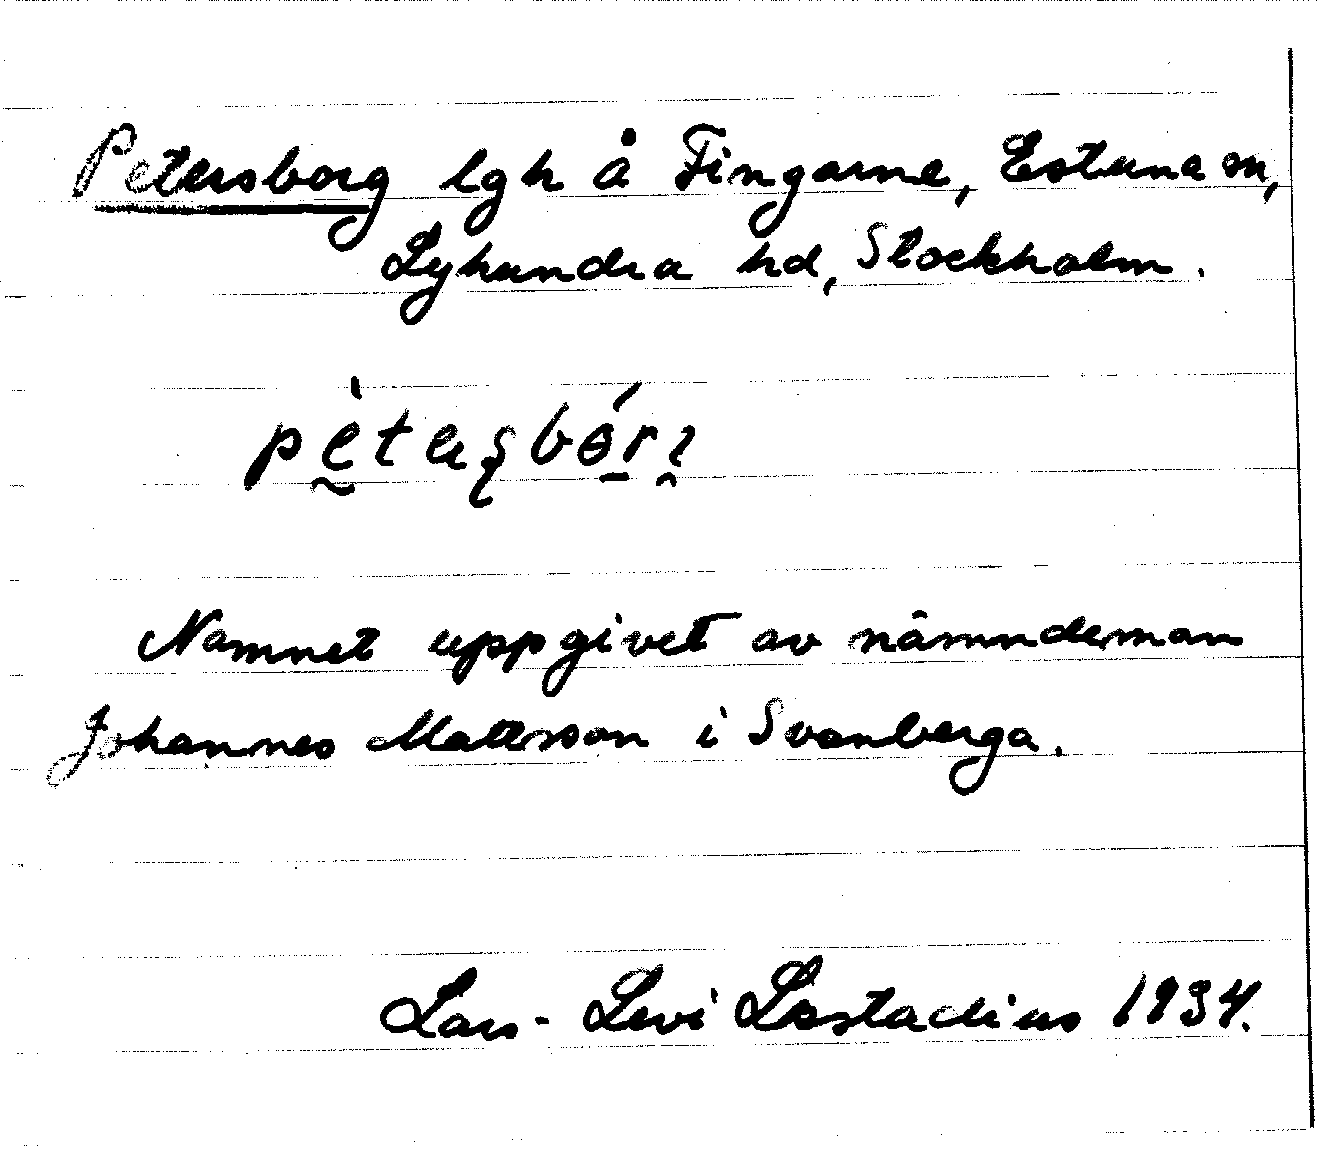 Petersborg lgh å Fingarne, Estuna sn,
Lyhundra hd, Stockholm.
Namnet uppgivet av nämndeman
Johannes Mattsson i Svanberga.
Lars-Levi Læstadius 1934.